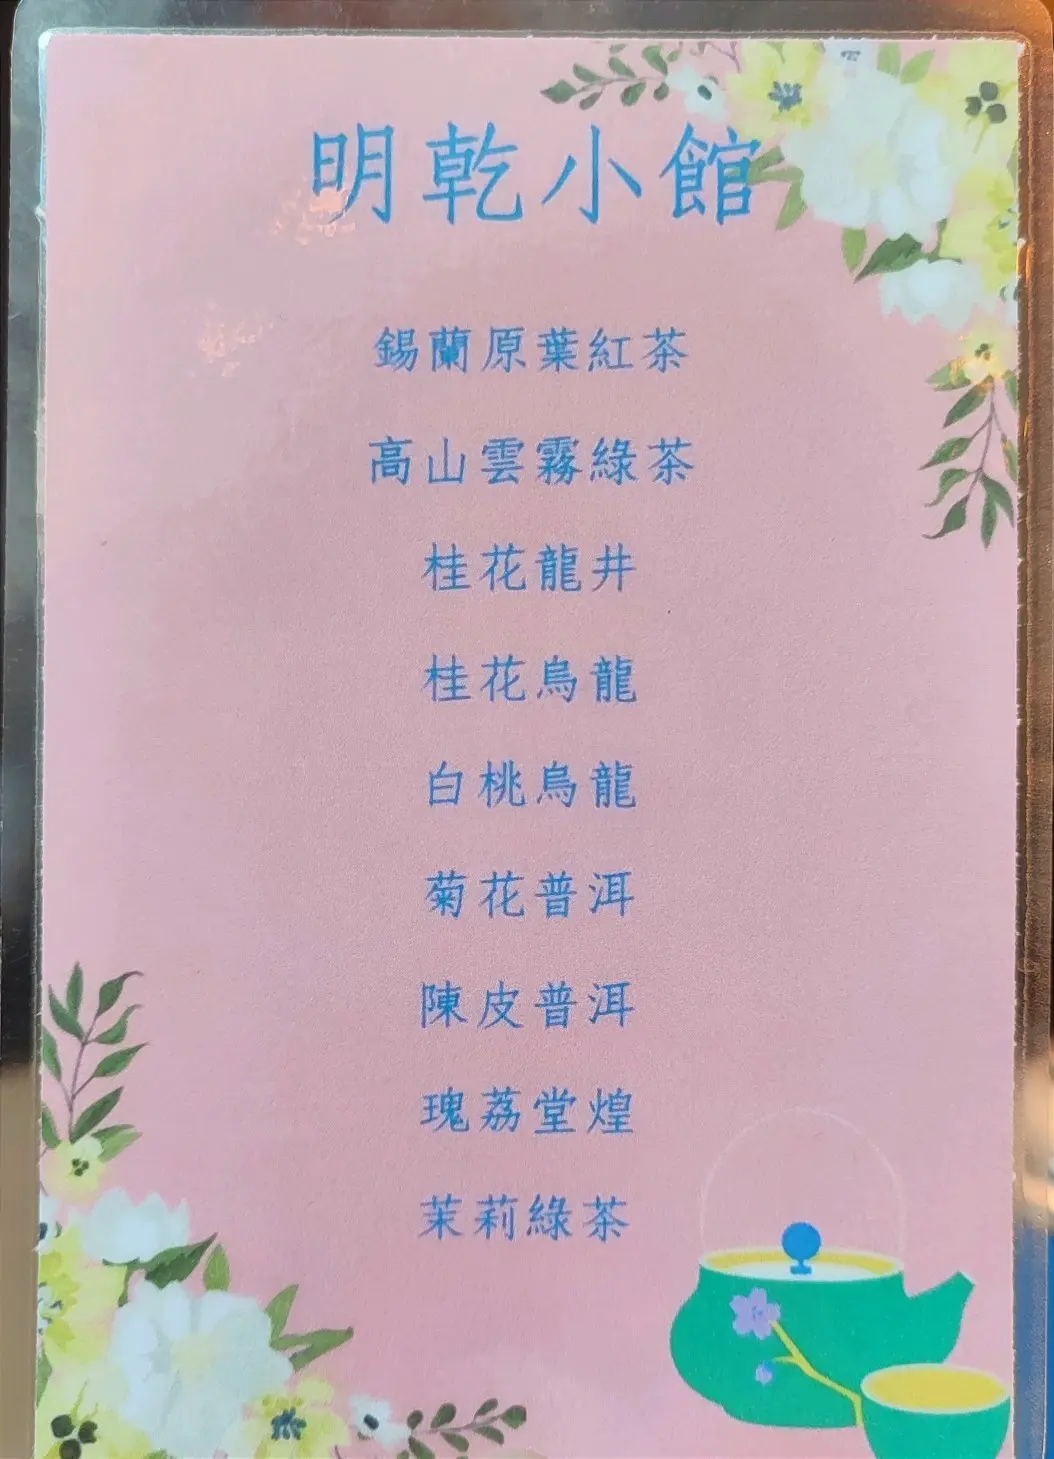 明乾小館
錫蘭原葉紅茶
高山雲霧綠茶
桂花龍井
桂花烏龍
白桃烏龍
菊花普洱
陳皮普洱
瑰荔堂煌
茉莉綠茶